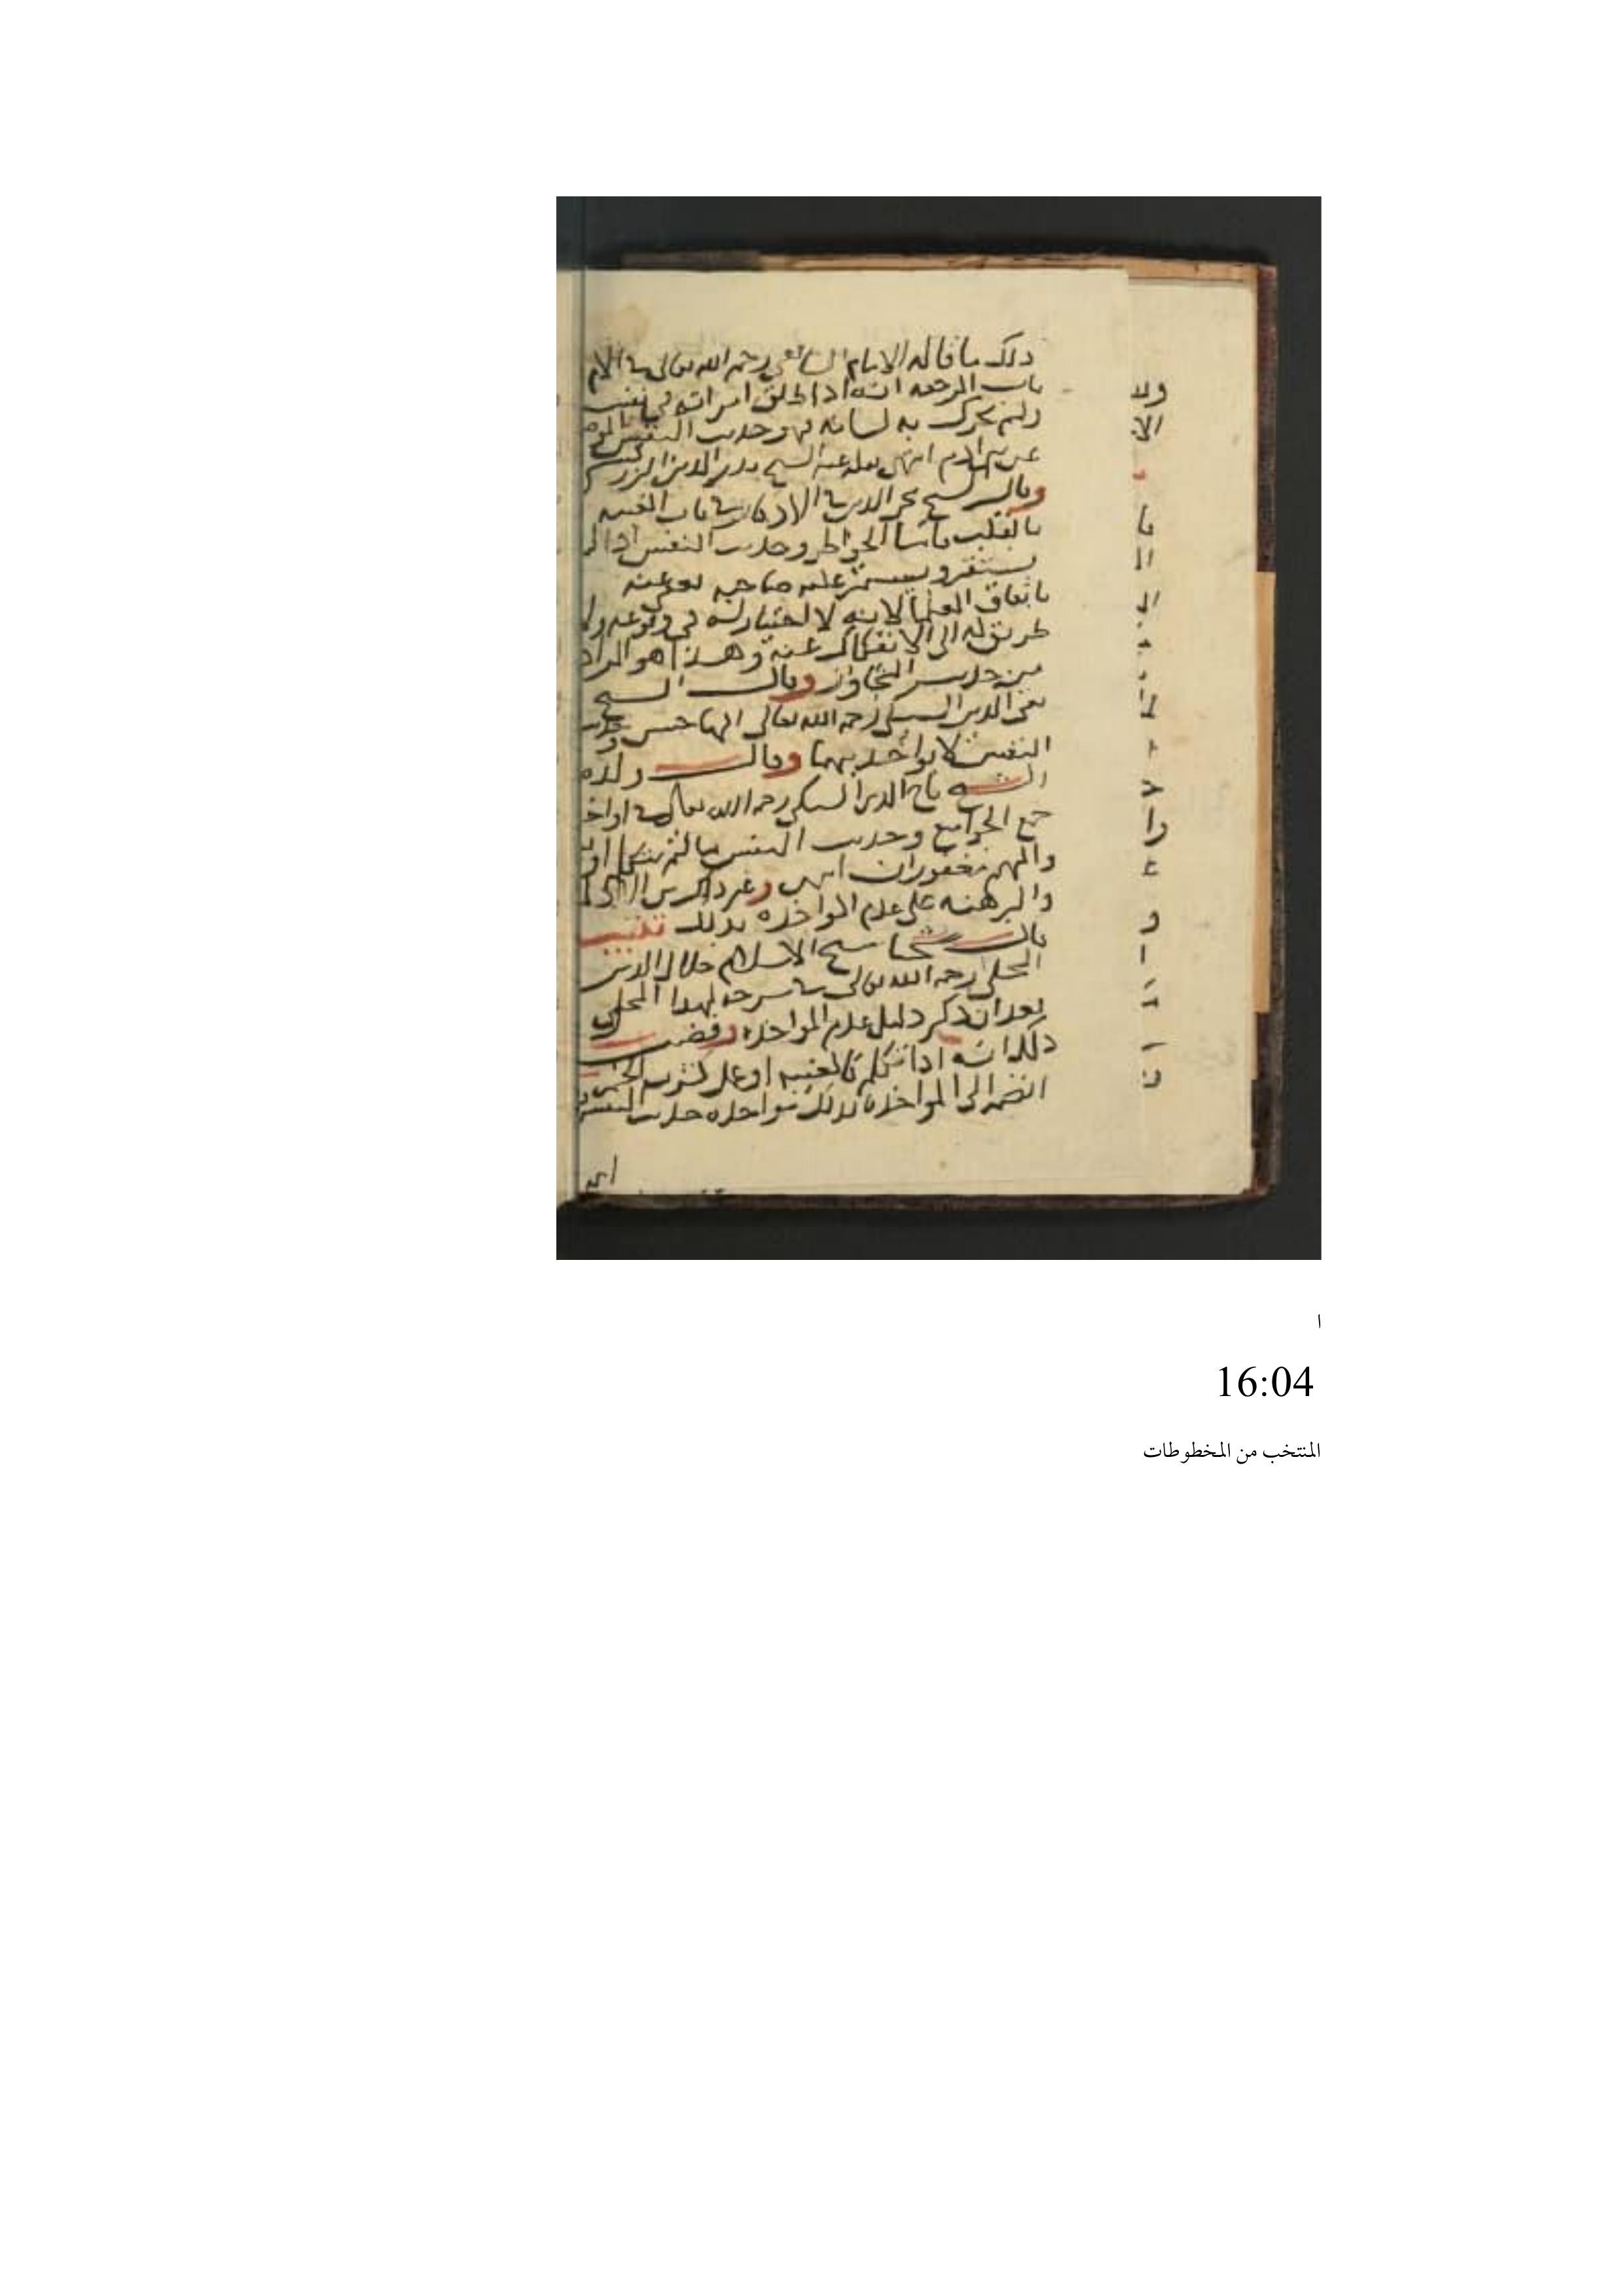 ذلك ما قاله الامام الشافعي رحمه الله تعالى في الام
باب الرجعه انه اذا طلق امراته في نفسه
ولم يحرك به لسانه فهو حديث النفس
انتهى نقله عنه الشيخ بدر الدين الزركشي
وقال الشيخ محي الدين في الاذكار في باب الغيبه
بالقلب فاما الخواطر وحديث النفس اذا لم
يستقر ويستمر عليه صاحبه فمعفو عنه
باتفاق العلما لانه لا اختيار له في وقوعه ولا
طريق له الى الانفكاك عنه وهذا هو المراد
من حديث التجاوز وقال الشيخ
تقي الدين السبكي رحمه الله تعالى
النفس لا يواخذ بهما وقال ولده
الشيخ تاج الدين السبكي رحمه الله تعالى في اواخر
جمع الجوامع وحديث النفس ما لم يتكلم او
والهم مغفوران انتهى وغير ذلك من
والبرهنه على عدم المواخذه بذلك تنبيه
قال شيخنا شيخ الاسلام جلال الدين
المحلي رحمه الله تعالى في شرحه لهذا المحل
بعد ان ذكر دليل عدم المواخذه وقضيت
ذلك انه اذا تكلم كالغيبه او عمل كشرب الخمر
انضم الى المواخذه بذلك مواخذه حديث النفس
ا
16:04
المنتخب من المخطوطات